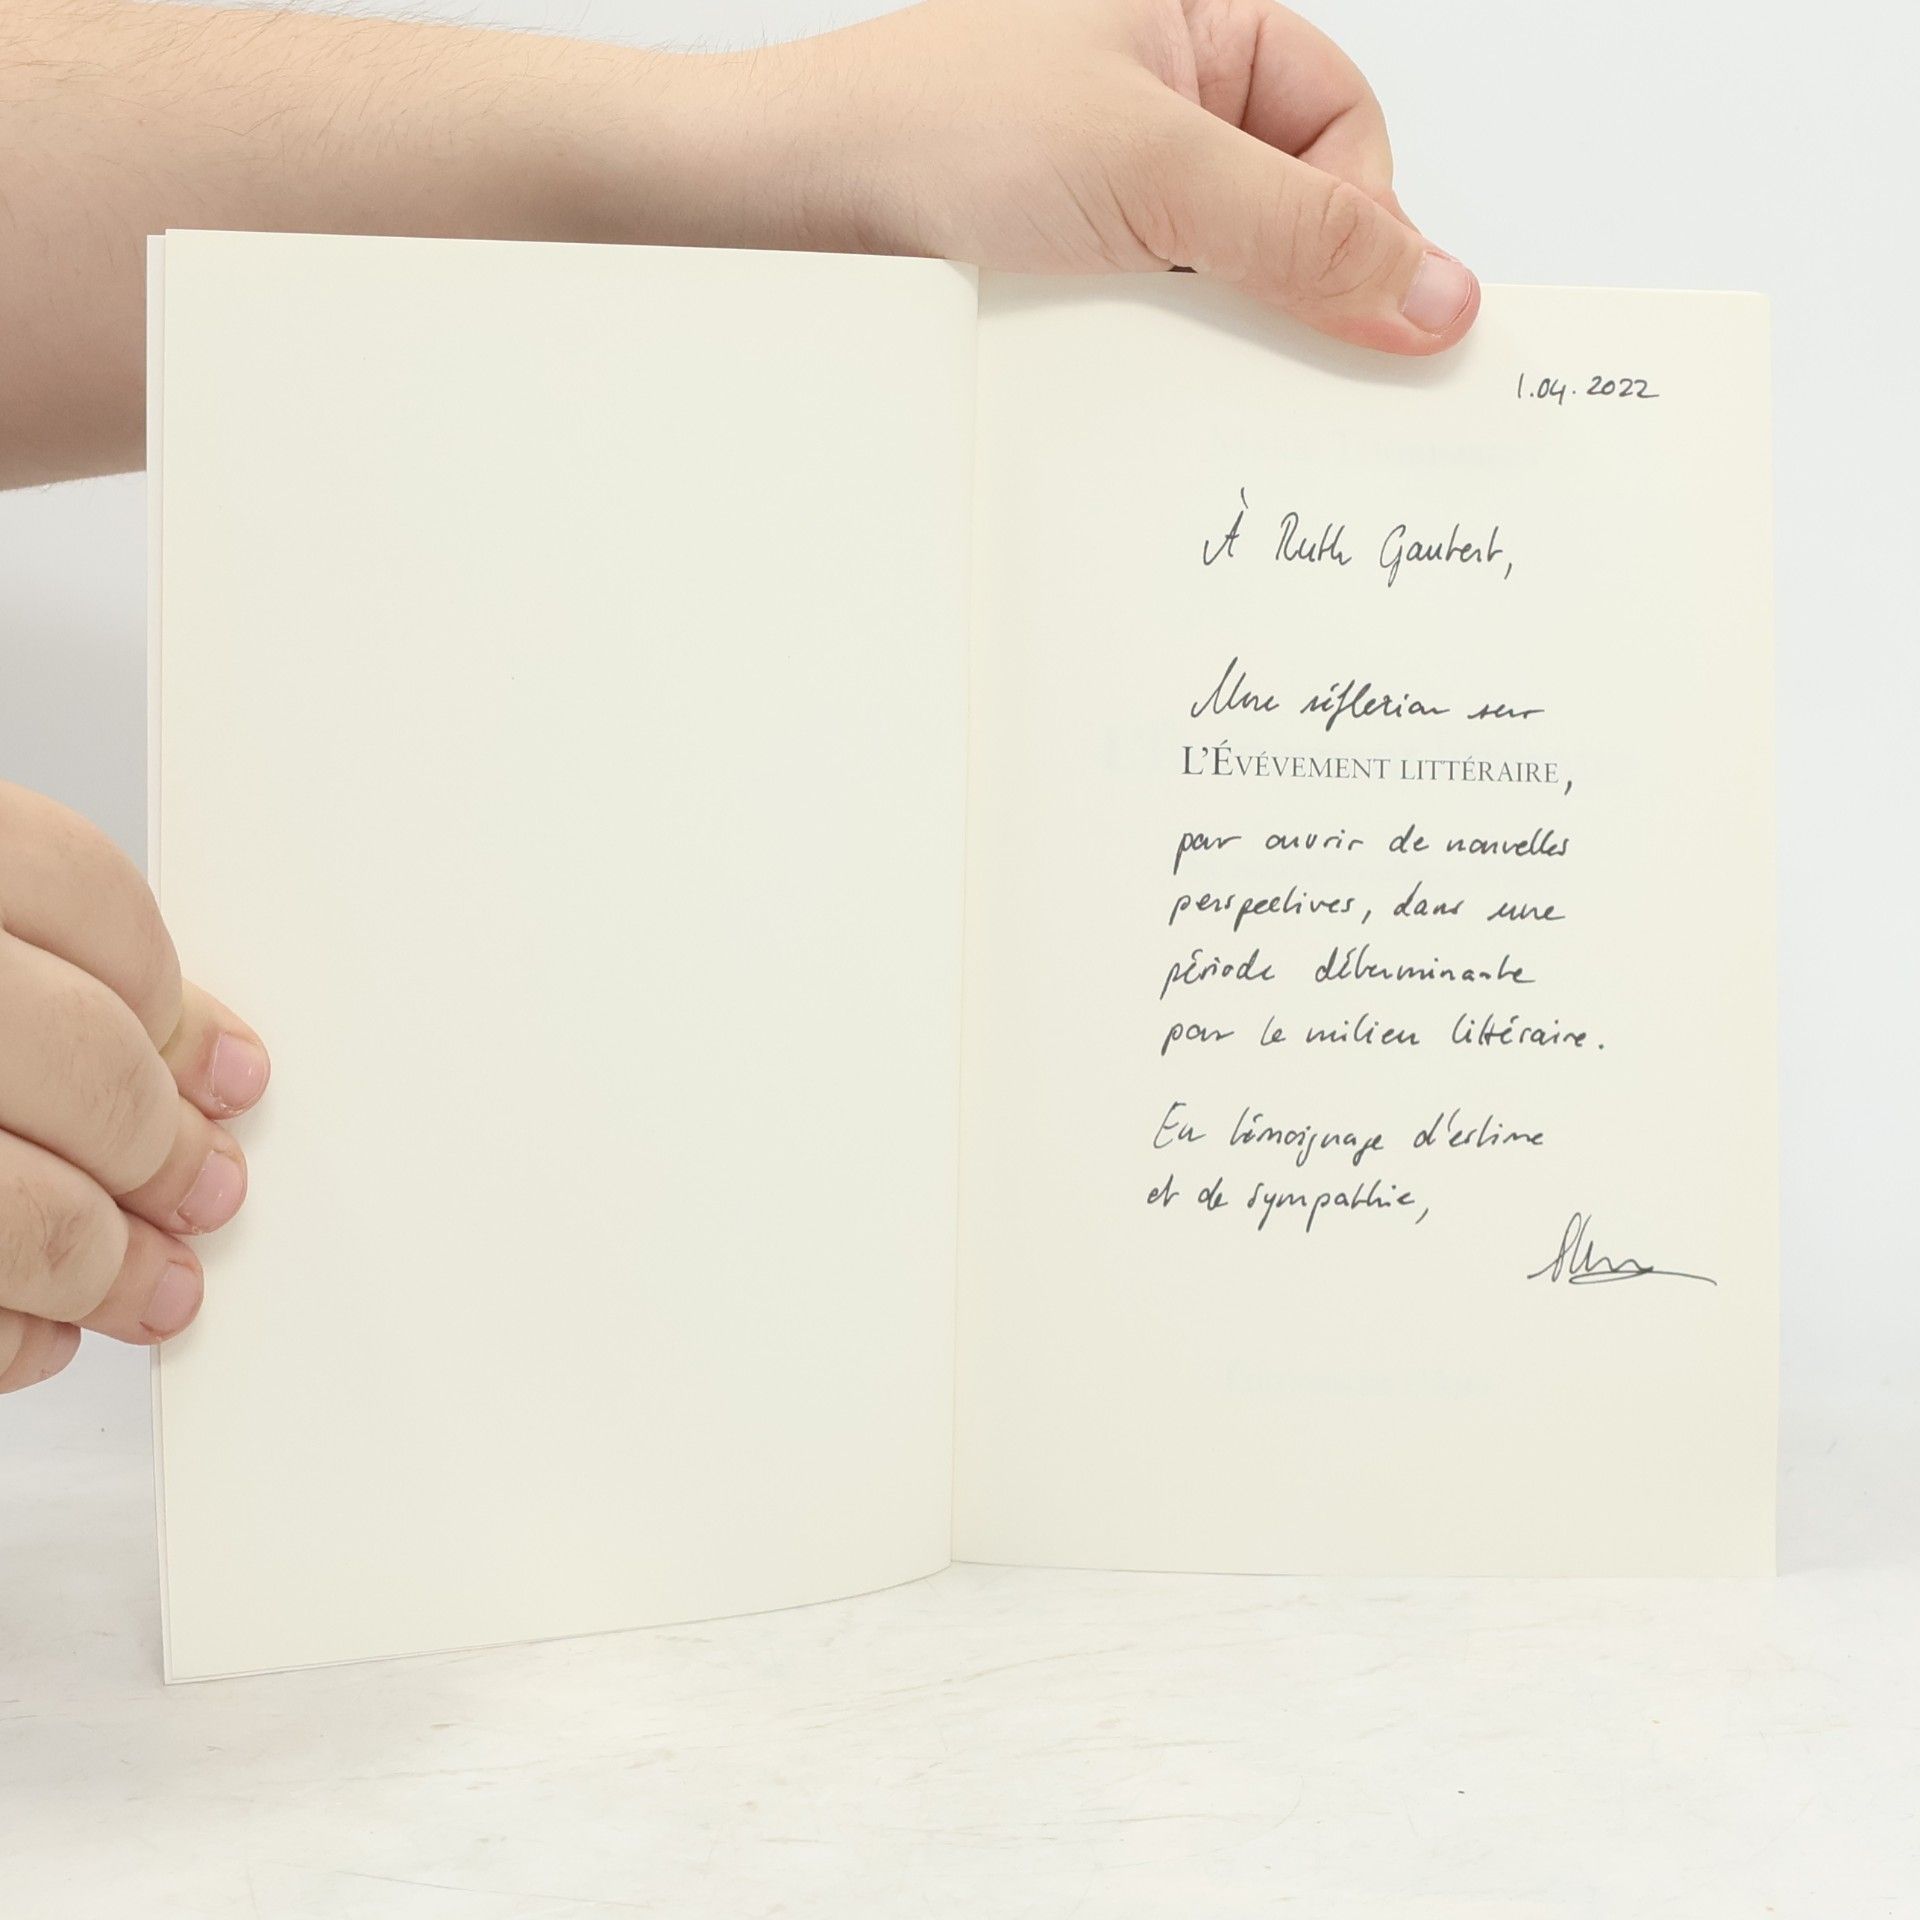 1.04.2022
À Ruth Gautert,
Une réflexion sur
L'ÉVÉVEMENT LITTÉRAIRE,
pour ouvrir de nouvelles
perspectives, dans une
période déterminante
pour le milieu littéraire.
En témoignage d'estime
et de sympathie,